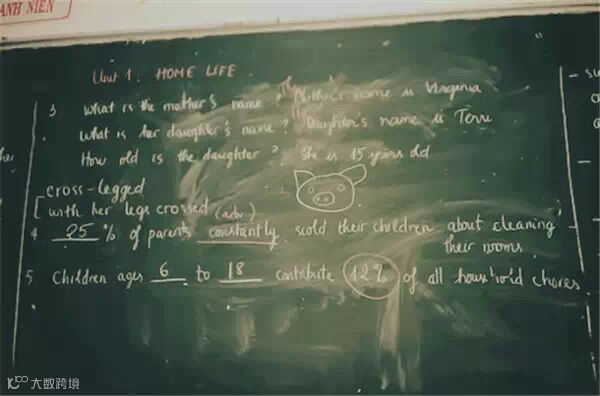 ANH NIÊN
Unit 1: HOME LIFE
3 What is the mother's name? The Mother's name is Virginia
What is her daughter's name? The Daughter's name is Terri
How old is the daughter? She is 15 years old
cross-legged
with her legs crossed (adv)
4 25 % of parents constantly scold their children about cleaning
their rooms
5 Children ages 6 to 18 contribute 12% of all household chores
大数跨境